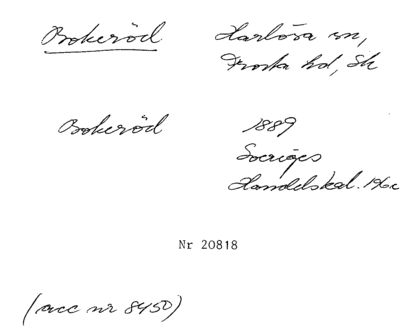 Bokeröd Harlösa sn,
Frosta hd, Sk
Bokeröd 1889
Sveriges
Handelskal.
Nr 20818
(acc nr 8450)